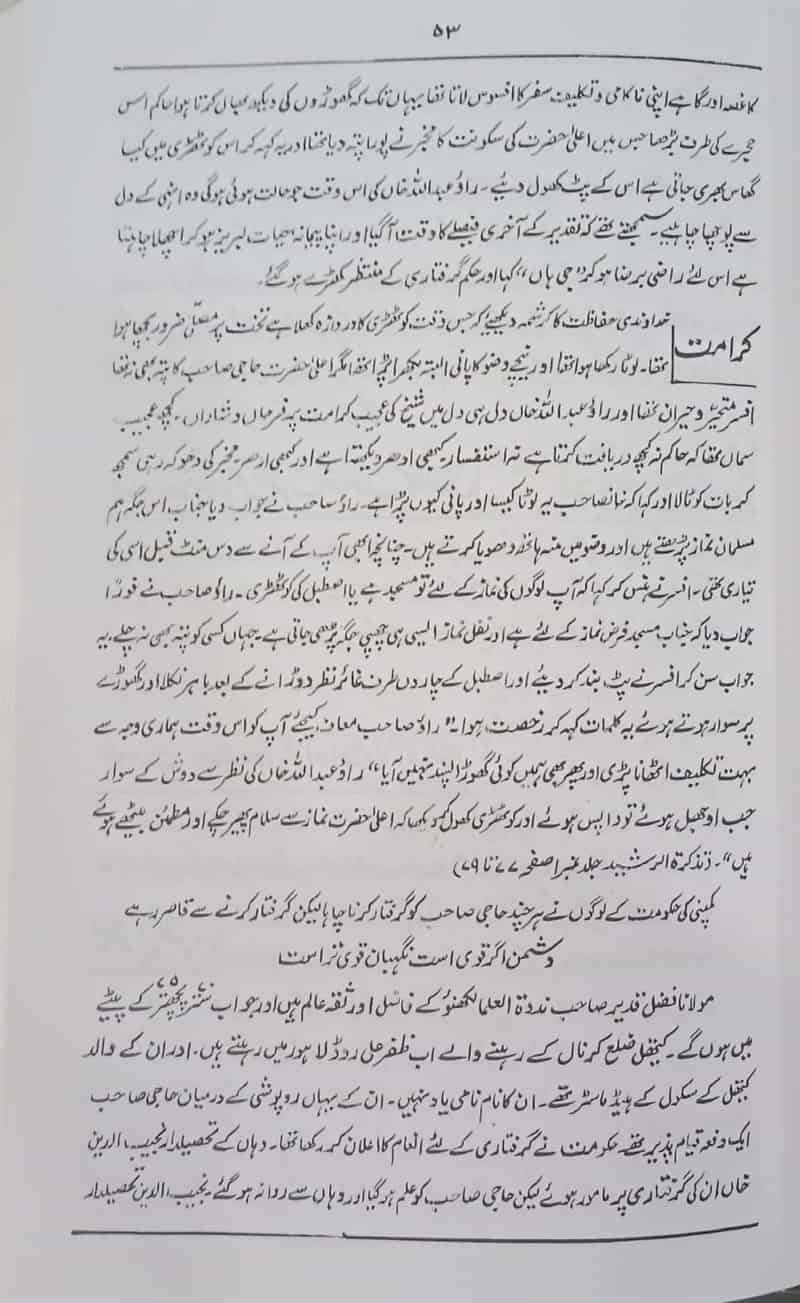 ۵۳
کا غصہ اور گاہے اپنی ناکامی و تکلیف سفر کا افسوس لاتا تھا یہاں تک کہ گھوڑوں کی دیکھ بھال کرتا ہوا حاکم اس
حجرے کی طرف بڑھا جس میں اعلیٰ حضرت کی سکونت کا مخبر نے پورا پتہ دیا تھا اور یہ کہہ کر اس کوٹھڑی میں کیا
گھاس بھری جاتی ہے اس کے پٹ کھول دیئے۔ راؤ عبداللہ خاں کی اس وقت جو حالت ہوئی ہوگی وہ انہی کے دل
سے پوچھا چاہیے۔ سمجھتے تھے کہ تقدیر کے آخری فیصلے کا وقت آگیا اور اپنا پیمانہ حیات لبریز ہو کر اچھلا چاہتا
ہے اس لئے راضی برضا ہو کر "جی ہاں" کہا اور حکم گرفتاری کے منتظر کھڑے ہو گئے۔
کرامت
خداوندی حفاظت کا کرشمہ دیکھیے کہ جس وقت کوٹھڑی کا دروازہ کھلا ہے تخت پر مصلّیٰ ضرور بچھا ہوا
تھا۔ لوٹا رکھا ہوا تھا اور نیچے وضو کا پانی البتہ بکھرا پڑا تھا مگر اعلیٰ حضرت حاجی صاحب کا پتہ بھی نہ تھا
افسر متحیر و حیران تھا اور راؤ عبداللہ خاں دل ہی دل میں شیخ کی عجیب کرامت پر فرحاں و شاداں۔ کچھ عجیب
سماں تھا کہ حاکم نہ کچھ دریافت کرتا ہے نہ استفسار کبھی ادھر دیکھتا ہے اور کبھی ادھر مخبر کی دھوکہ دہی سمجھ
کر بات کو ٹالا اور کہا کہ خانصاحب یہ لوٹا کیسا اور پانی کیوں پڑا ہے۔ راؤ صاحب نے جواب دیا جناب اس جگہ ہم
مسلمان نماز پڑھتے ہیں اور وضو میں منہ ہاتھ دھویا کرتے ہیں۔ چنانچہ ابھی آپ کے آنے سے دس منٹ قبل اسی کی
تیاری تھی۔ افسر نے ہنس کر کہا کہ آپ لوگوں کی نماز کے لئے تو مسجد ہے یا اصطبل کی کوٹھڑی۔ راؤ صاحب نے فوراً
جواب دیا کہ جناب مسجد فرض نماز کے لئے ہے اور نفل نماز ایسی ہی چھپی جگہ پڑھی جاتی ہے جہاں کسی کو پتہ بھی نہ چلے۔ یہ
جواب سن کر افسر نے پٹ بند کر دیئے اور اصطبل کے چاروں طرف غائر نظر دوڑانے کے بعد باہر نکلا اور گھوڑے
پر سوار ہوتے ہوئے یہ کلمات کہہ کر رخصت ہوا۔ "راؤ صاحب معاف کیجئے آپ کو اس وقت ہماری وجہ سے
بہت تکلیف اٹھانا پڑی اور پھر بھی ہمیں کوئی گھوڑا پسند نہیں آیا" راؤ عبداللہ خاں کی نظر سے دوش کے سوار
جب اوجھل ہوئے تو واپس ہوئے اور کوٹھڑی کھول کر دیکھا کہ اعلیٰ حضرت نماز سے سلام پھیر چکے اور مطمئن بیٹھے ہوئے
ہیں"۔ (تذکرۃ الرشید جلد نمبر۱ صفحہ ۷۷ تا ۷۹)
کمپنی کی حکومت کے لوگوں نے ہر چند حاجی صاحب کو گرفتار کرنا چاہا لیکن گرفتار کرنے سے قاصر رہے
دشمن اگر قوی است نگہبان قوی تر است
مولانا فضل قدیر صاحب ندوۃ العلما لکھنؤ کے فاضل اور ثقہ عالم ہیں اور جو اب ستر پچھتر ۷۰ ۷۵ کے پیٹے
میں ہوں گے۔ کیتھل ضلع کرنال کے رہنے والے اب ظفر علی روڈ لاہور میں رہتے ہیں۔ اور ان کے والد
کیتھل کے سکول کے ہیڈ ماسٹر تھے۔ ان کا نام نامی یاد نہیں۔ ان کے یہاں روپوشی کے درمیان حاجی صاحب
ایک دفعہ قیام پذیر تھے حکومت نے گرفتاری کے لئے انعام کا اعلان کر رکھا تھا۔ وہاں کے تحصیلدار نجیب الدین
خاں ان کی گرفتاری پر مامور ہوئے لیکن حاجی صاحب کو علم ہو گیا اور وہاں سے روانہ ہو گئے۔ نجیب الدین تحصیلدار